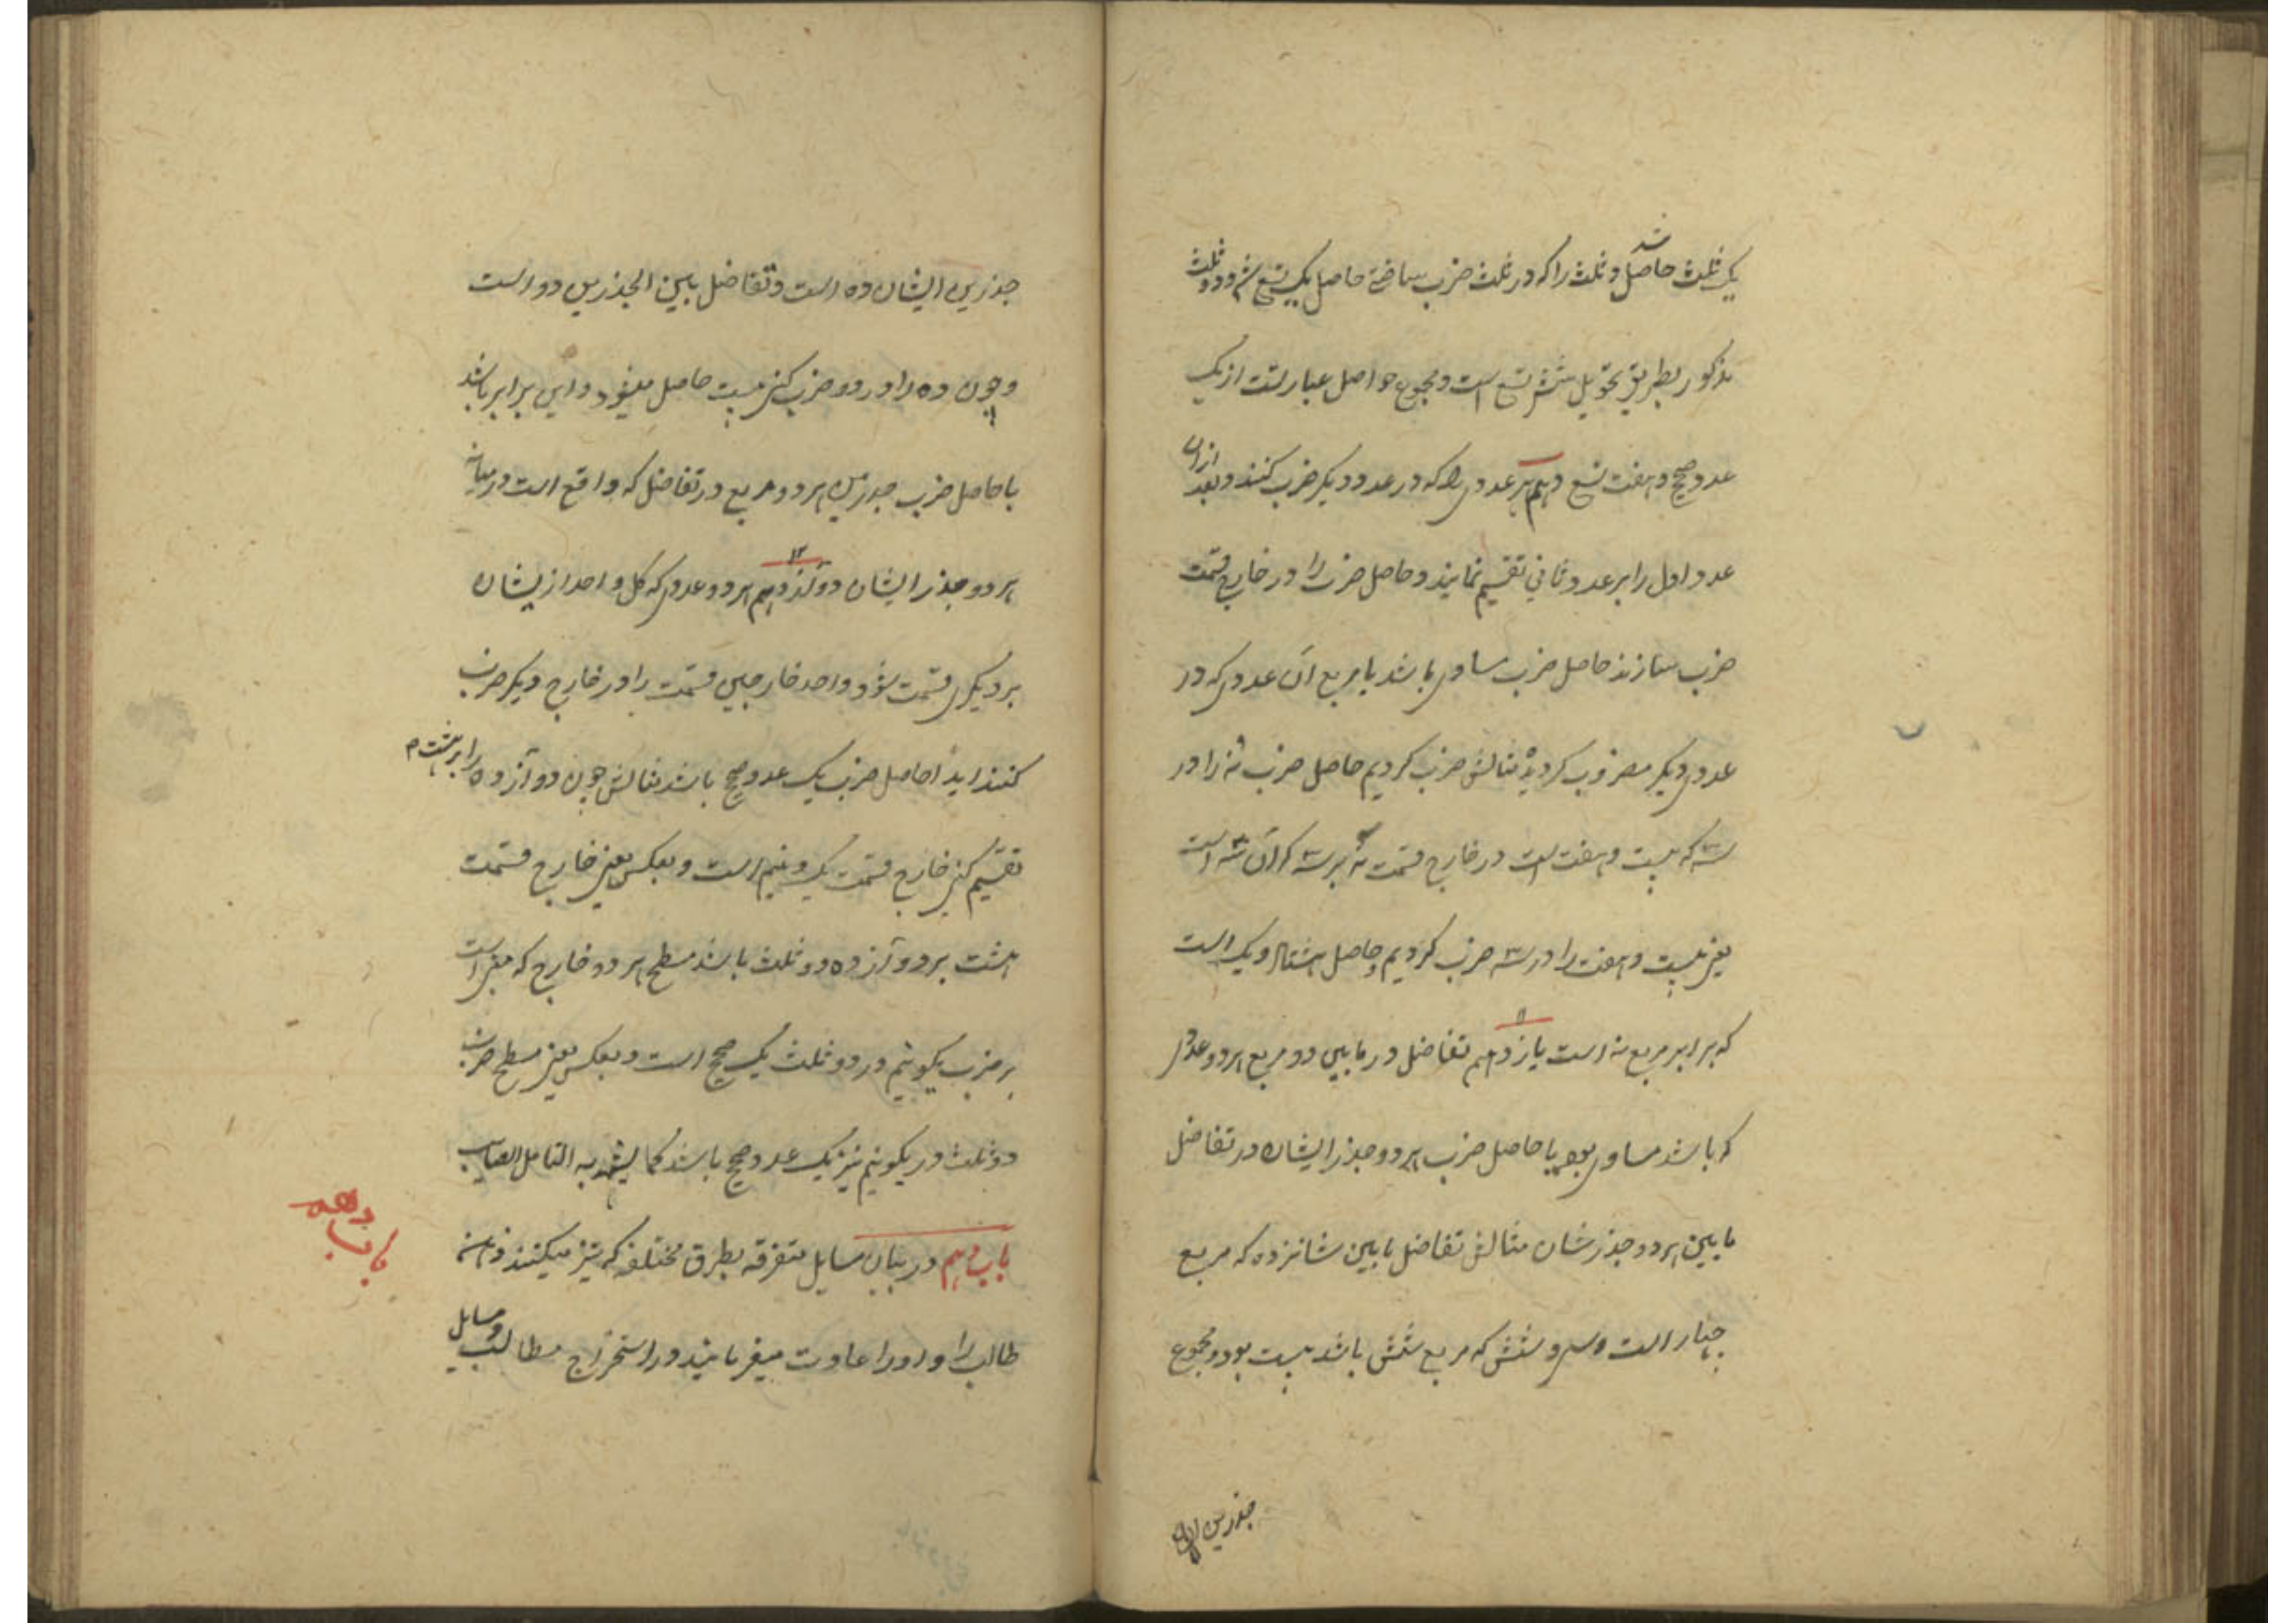 یک ثلث حاصل شد و ثلث را که در ثلث ضرب ساختی حاصل یک تسع شد و دو ثلث
مذکور بطریق تحویل شش تسع است و مجموع حواصل عبارتست از یک
عدد صحیح و هفت تسع دهم هر عددی را که در عدد دیگر ضرب کنند و بعد ازان
عدد اول را بر عدد ثانی تقسیم نمایند و حاصل ضرب را در خارج قسمت
ضرب سازند حاصل ضرب مساوی باشد با مربع آن عددی که در
عددی دیگر مضروب گردیده مثالش ضرب کردیم حاصل ضرب نه را در
سه که بیست و هفت است در خارج قسمت نه بر سه که آن سه است
یعنی بیست و هفت را در سه ضرب کردیم و حاصل هشتاد و یک است
که برابر مربع نه است یازدهم ۱۱ تفاضل در مابین دو مربع هر دو عددی
که باشد مساوی بود با حاصل ضرب هر دو جذر ایشان در تفاضل
مابین هر دو جذرشان مثالش تفاضل مابین شانزده که مربع
چهار است و سی و شش که مربع شش باشد بیست بود و مجموع
جذرین ایشان
جذرین ایشان ده است و تفاضل بین الجذرین دو است
و چون ده را در دو ضرب کنی بیست حاصل میشود و این برابر باشد
با حاصل ضرب جذرین هر دو مربع در تفاضل که واقع است در میانه
هر دو جذر ایشان دوآزدهم ۱۲ هر دو عددی که کل واحد از یشان
بر دیگری قسمت شود و احد خارجین قسمت را در خارج دیگر ضرب
کنند ابدا حاصل ضرب یک عدد صحیح باشد مثالش چون دوآزده را بر هشت
تقسیم کنی خارج قسمت یک و نیم است و بعکس یعنی خارج قسمت
هشت بر دوآزده دو ثلث باشد مسطح هر دو خارج که معبر است
بر ضرب یکونیم در دو ثلث یک صحیح است و بعکس یعنی مسطح ضرب
دو ثلث در یکونیم نیز یک عدد صحیح باشد کما یشهد به التامل الصایب
باب دهم در بیان مسایل متفرقه بطرق مختلفه که تیز میکنند ذهن
طالب را و او را عادت میفرمایند در استخراج مطالب و مسایل
باب دهم